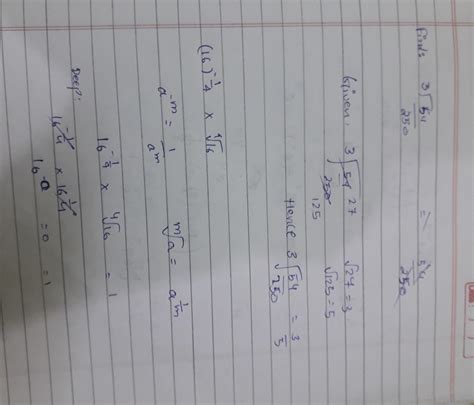 Find: 3√54/250 => 54/250
Given: 3√54/250 27/125 √27 = 3
√125 = 5
Hence 3√54/250 = 3/5
(16)^-1/4 × 4√16
a^-m = 1/a^m m√a = a^1/m
16^-1/4 × 4√16 = 1
16^-1/4 × 16^1/4
16^0 = 0 = 1